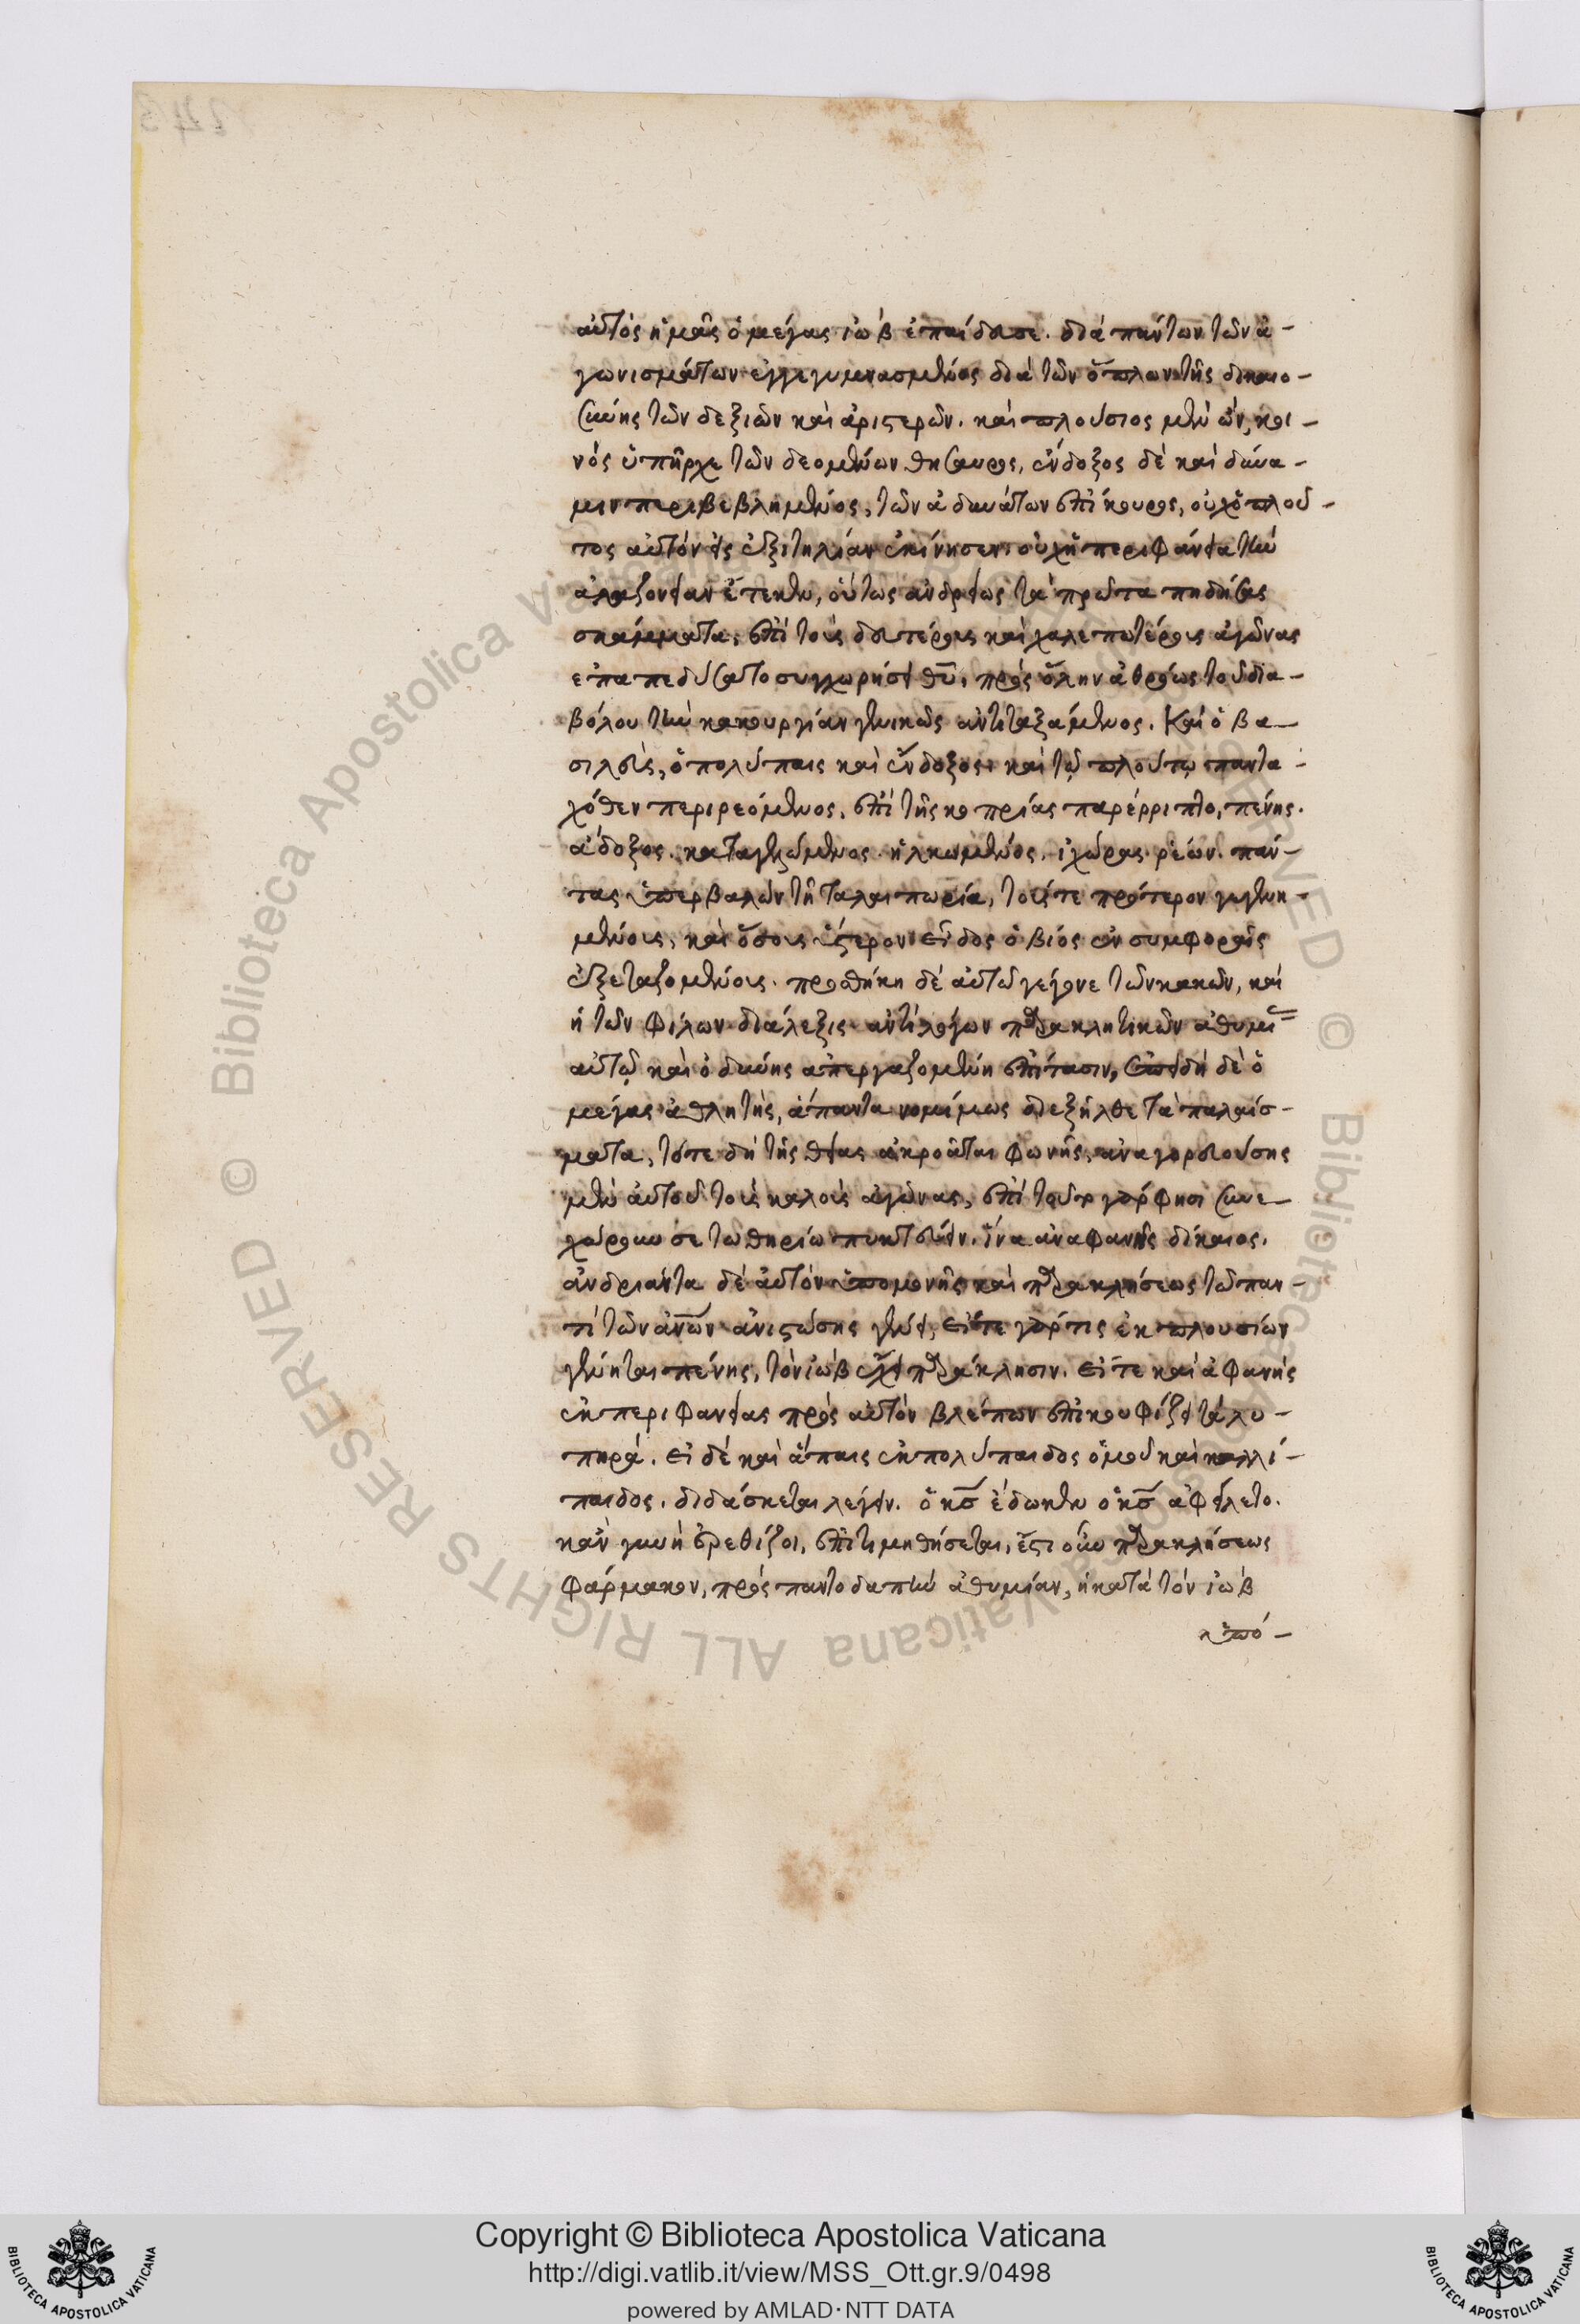 αὐτὸς ἡμᾶς ὁ μέγας ἰὼβ ἐπαίδευσε. διὰ πάντων τῶν ἀ-
γωνισμάτων ἐγγεγυμνασμένος διὰ τῶν ὅπλων τῆς δικαιο-
σύνης τῶν δεξιῶν καὶ ἀριστερῶν. καὶ πλούσιος μὲν ὢν, κοι-
νὸς ὑπῆρχε τῶν δεομένων θησαυρὸς, ἔνδοξος δὲ καὶ δύνα-
μιν περιβεβλημένος, τῶν ἀδυνάτων ἐπίκουρος, οὐχ ὁ πλοῦ-
τος αὐτὸν εἰς ἐξιτηλίαν ἐκίνησεν. οὐχ ἡ περιφάνεια τὴν
ἀλαζονείαν ἔτεκεν, οὕτως ἀνδρείως τὰ πρῶτα πηδήσας
σκάμματα, ἐπὶ τοὺς δευτέρους καὶ χαλεπωτέρους ἀγῶνας
ἐπαπεδύσατο συγχωρήσει θῦ, πρὸς ὅλην ἀθρόως τοῦ δια-
βόλου τὴν κακουργίαν γενικῶς ἀντιταξάμενος. Καὶ ὁ βα-
σιλεὺς, ὁ πολύπαις καὶ ἔνδοξος. καὶ τῷ πλούτῳ παντα-
χόθεν περιρεόμενος, ἐπὶ τῆς κοπρίας παρέρριπτο, πένης.
ἄδοξος. καταγελώμενος. ἡλκωμένος. ἰχώρας ῥέων. πάν-
τας ὑπερβαλὼν τῆ ταλαιπωρία, τούς τε πρότερον γεγενη-
μένους, καὶ ὅσους ὕστερον εἶδος ὁ βίος ἐν συμφοραῖς
ἐξεταζομένους. προσθήκη δὲ αὐτῶ γέγονε τῶν κακῶν, καὶ
ἡ τῶν φίλων διάλεξις ἀντὶ λόγων παρακλητικῶν ἀθυμί
αὐτῷ καὶ ὀδύνης ἀπεργαζομένη ἐπίτασιν, ἐπειδὴ δὲ ὁ
μέγας ἀθλητὴς, ἅπαντα νομίμως διεξῆλθε τὰ παλαίσ-
ματα, τότε δὴ τῆς θείας ἀκροᾶται φωνῆς, ἀναγορευούσης
μὲν αὐτοῦ τοὺς καλοὺς ἀγῶνας, ἐπὶ τούτω γάρ φησι συνε-
χώρουν σε τῶ θηρίω πυκτεύειν. ἵνα ἀναφανῆς δίκαιος.
ἀνδριάντα δὲ αὐτὸν ὑπομονῆς καὶ παρακλήσεως τῶ παν-
τὶ τῶν ἀνῶν ἀνιστώσης γένει, εἴτε γάρ τις ἐκ πλουσίων
γένηται πένης, τὸν ἰὼβ ἔχει παράκλησιν. εἴτε καὶ ἀφανὴς
ἐκ περιφανείας πρὸς αὐτὸν βλέπων ἐπικουφίζει τὰ λυ-
πηρά. εἰ δὲ καὶ ἄπαις ἐκ πολύπαιδος ὁμοῦ καὶ καλλί-
παιδος. διδάσκεται λέγειν. ὁ κς ἔδωκεν ὁ κς ἀφείλετο.
κἂν γυνὴ ἐρεθίζοι, ἐπιτιμηθήσεται, ἔστι οὖν παρακλήσεως
φάρμακον, πρὸς παντοδαπὴν ἀθυμίαν, ἡ κατὰ τὸν ἰὼβ
ὑπό-
Copyright © Biblioteca Apostolica Vaticana
http://digi.vatlib.it/view/MSS_Ott.gr.9/0498
powered by AMLAD·NTT DATA
BIBLIOTECA APOSTOLICA VATICANA
BIBLIOTECA APOSTOLICA VATICANA
© Biblioteca Apostolica Vaticana ALL RIGHTS RESERVED